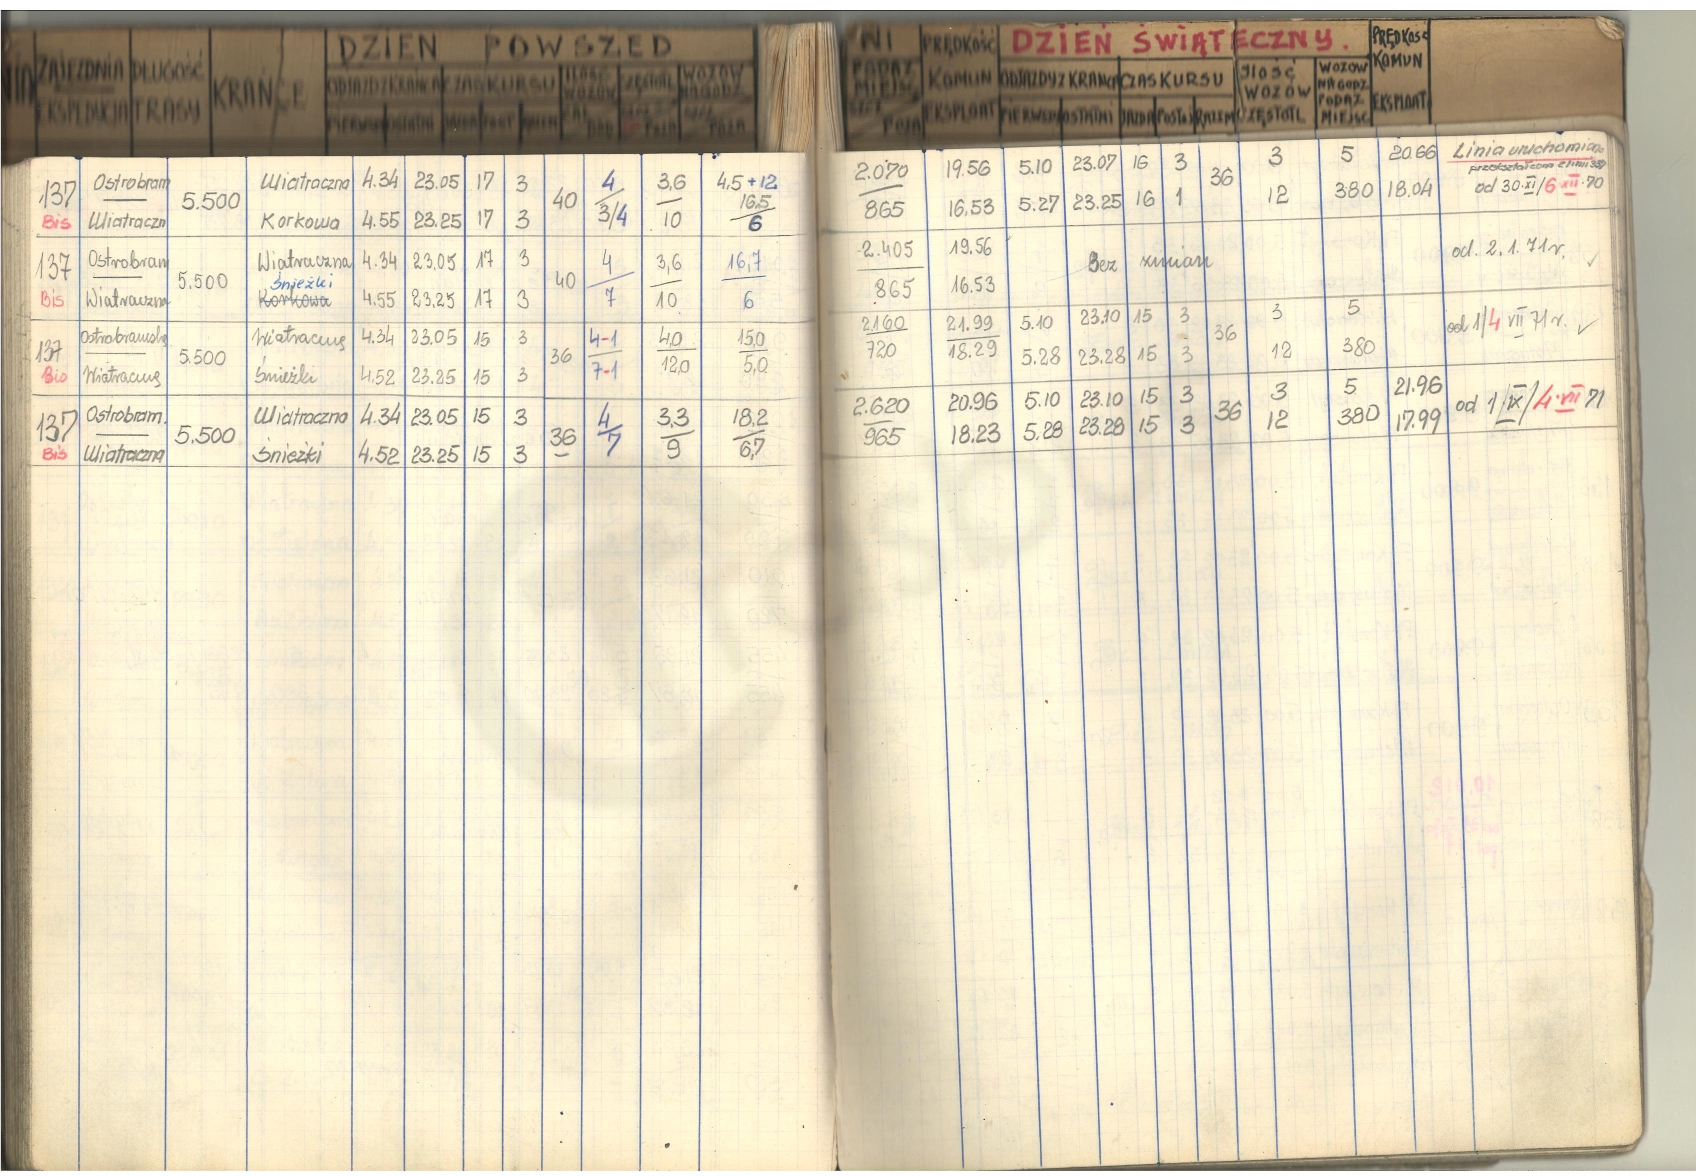 DZIEŃ POWSZED NI PRĘDKOŚĆ DZIEŃ ŚWIĄTECZNY. PRĘDKOŚĆ
ZAJEZDNIA DŁUGOŚĆ KRAŃCE ODJAZDY Z KRAŃCA CZAS KURSU ILOŚĆ WOZÓW CZĘSTOTL WOZÓW NA GODZ PODAŻ MIEJSC KOMUN ODJAZDY Z KRAŃCA CZAS KURSU ILOŚĆ WOZÓW WOZÓW NA GODZ KOMUN
EKSPEDYCJA TRASY PIERWSZ OSTATNI POZA POZA EKSPLOAT PIERWSZ OSTATNI JAZDA POSTÓJ RAZEM CZĘSTOTL PODAŻ MIEJSC EKSPLOAT
137 Ostrobram 5.500 Wiatraczna 4.34 23.05 17 3 40 4 3,6 4,5+12 16,5 2.070 19.56 5.10 23.07 16 3 36 3 5 20.66 Linia uruchomiona
przekształcona z linii
Bis Wiatraczn Korkowa 4.55 23.25 17 3 3/4 10 6 865 16,53 5.27 23.25 16 1 12 380 18.04 od 30.XI/6.XII.70
137 Ostrobram 5.500 Wiatraczna 4.34 23.05 17 3 40 4 3,6 16,7 2.405 19.56 Bez zmian od. 2.1.71r. ✓
Śnieżki
Bis Wiatraczna Korkowa 4.55 23.25 17 3 7 10 6 865 16.53
137 Ostrobramska 5.500 Wiatraczna 4.34 23.05 15 3 36 4-1 4,0 15,0 2160 21.99 5.10 23.10 15 3 36 3 5 od 1/4 VII 71r. ✓
Bis Wiatraczna Śnieżki 4.52 23.25 15 3 7-1 12,0 5,0 720 18.29 5.28 23.28 15 3 12 380
137 Ostrobram. 5.500 Wiatraczna 4.34 23.05 15 3 36 4 3,3 18,2 2.620 20.96 5.10 23.10 15 3 36 3 5 21.96 od 1/IX/4.VII 71
Bis Wiatraczna Śnieżki 4.52 23.25 15 3 7 9 6,7 965 18.23 5.28 23.28 15 3 12 380 17.99